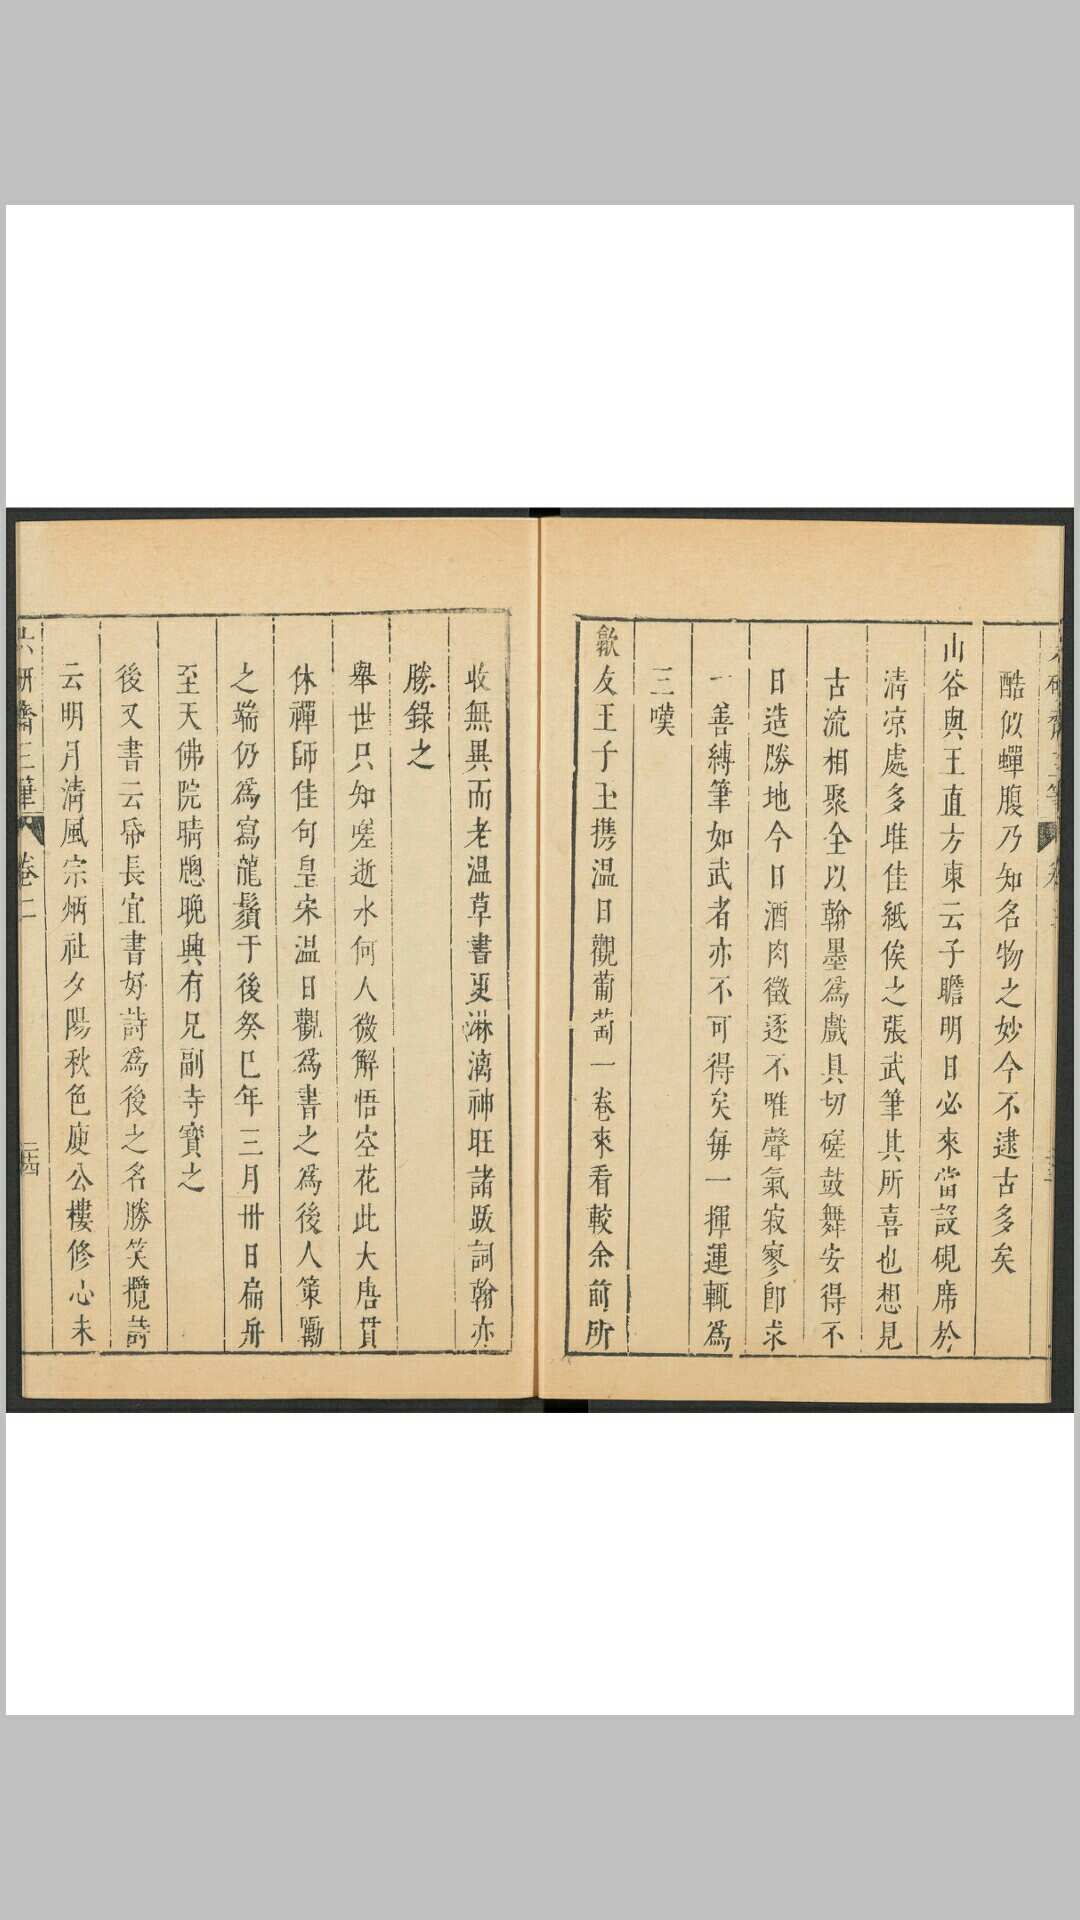 酷似蟬腹乃知名物之妙今不逮古多矣
山谷與王直方柬云子瞻明日必來當設硯席於
清凉處多堆佳紙俟之張武筆其所喜也想見
古流相聚全以翰墨爲戲具切磋鼓舞安得不
日造勝地今日酒肉徵逐不唯聲氣寂寥卽求
一善縛筆如武者亦不可得矣每一揮運輒爲
三嘆
歙友王子玉攜温日觀葡萄一卷來看較余前所
收無異而老温草書更淋漓神旺諸跋詞翰亦
勝錄之
舉世只知嗟逝水何人微解悟空花此大唐貫
休禪師佳句皇宋温日觀爲書之爲後人策勵
之端仍爲寫龍鬚于後癸巳年三月卅日扁舟
至天佛院晴牕晚興有兄副寺寶之
後又書云帋長宜書好詩爲後之名勝笑攬詩
云明月清風宗炳社夕陽秋色庾公樓修心未
六研齋三筆 卷二 二四